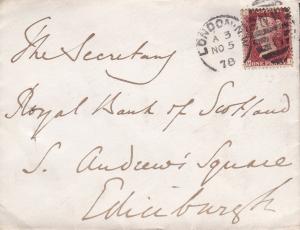 LONDON
A 3
NO 5
78
The Secretary
Royal Bank of Scotland
S. Andrew's Square
Edinburgh